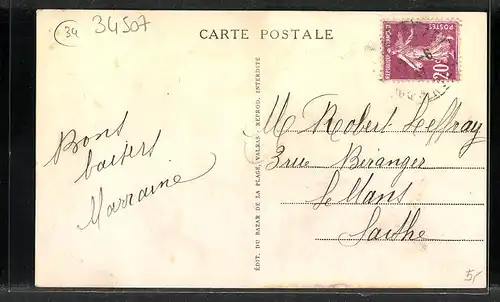 34
34507
CARTE POSTALE
POSTES
20c
Bons
baisers
Marraine
ÉDIT. DU BAZAR DE LA PLAGE, VALRAS - REPROD. INTERDITE
M Robert Leffray
3 rue Béranger
Le Mans
Sarthe
5,